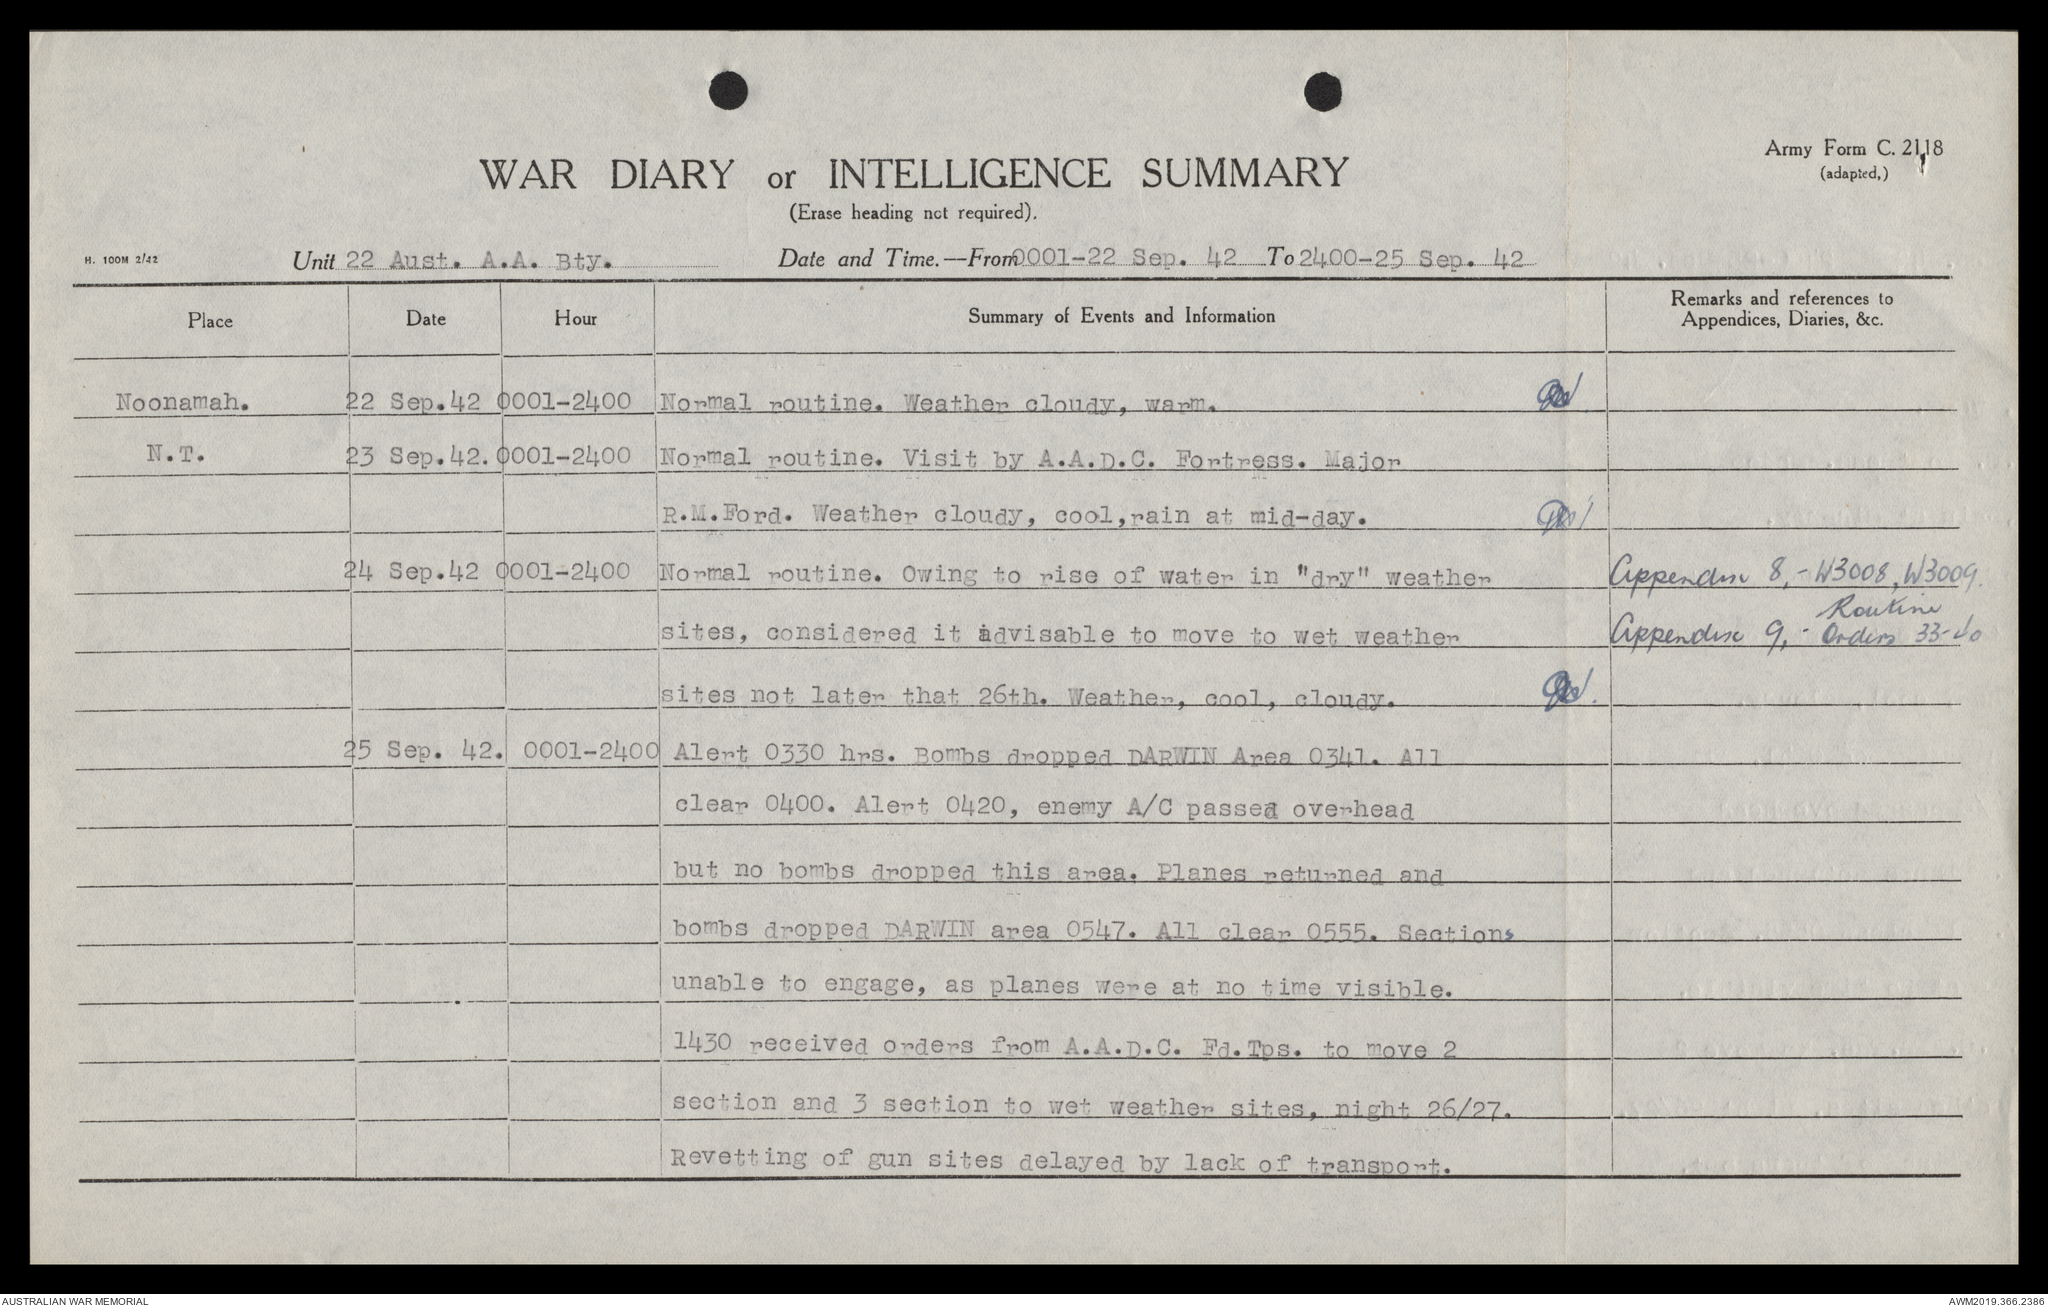 Army Form C. 2118
(adapted,)
WAR DIARY or INTELLIGENCE SUMMARY
(Erase heading not required).
H. 100M 2/42
Unit 22 Aust. A.A. Bty. Date and Time.—From 0001-22 Sep. 42 To 2400-25 Sep. 42
Place Date Hour Summary of Events and Information Remarks and references to
Appendices, Diaries, &c.
Noonamah. 22 Sep.42 0001-2400 Normal routine. Weather cloudy, warm.
N.T. 23 Sep.42. 0001-2400 Normal routine. Visit by A.A.D.C. Fortress. Major
R.M.Ford. Weather cloudy, cool,rain at mid-day.
24 Sep.42 0001-2400 Normal routine. Owing to rise of water in "dry" weather Appendix 8,- W3008, W3009.
sites, considered it advisable to move to wet weather Appendix 9,- Routine Orders 33-40
sites not later that 26th. Weather, cool, cloudy.
25 Sep. 42. 0001-2400 Alert 0330 hrs. Bombs dropped DARWIN Area 0341. All
clear 0400. Alert 0420, enemy A/C passed overhead
but no bombs dropped this area. Planes returned and
bombs dropped DARWIN area 0547. All clear 0555. Sections
unable to engage, as planes were at no time visible.
1430 received orders from A.A.D.C. Fd.Tps. to move 2
section and 3 section to wet weather sites, night 26/27.
Revetting of gun sites delayed by lack of transport.
AUSTRALIAN WAR MEMORIAL AWM2019.366.2386